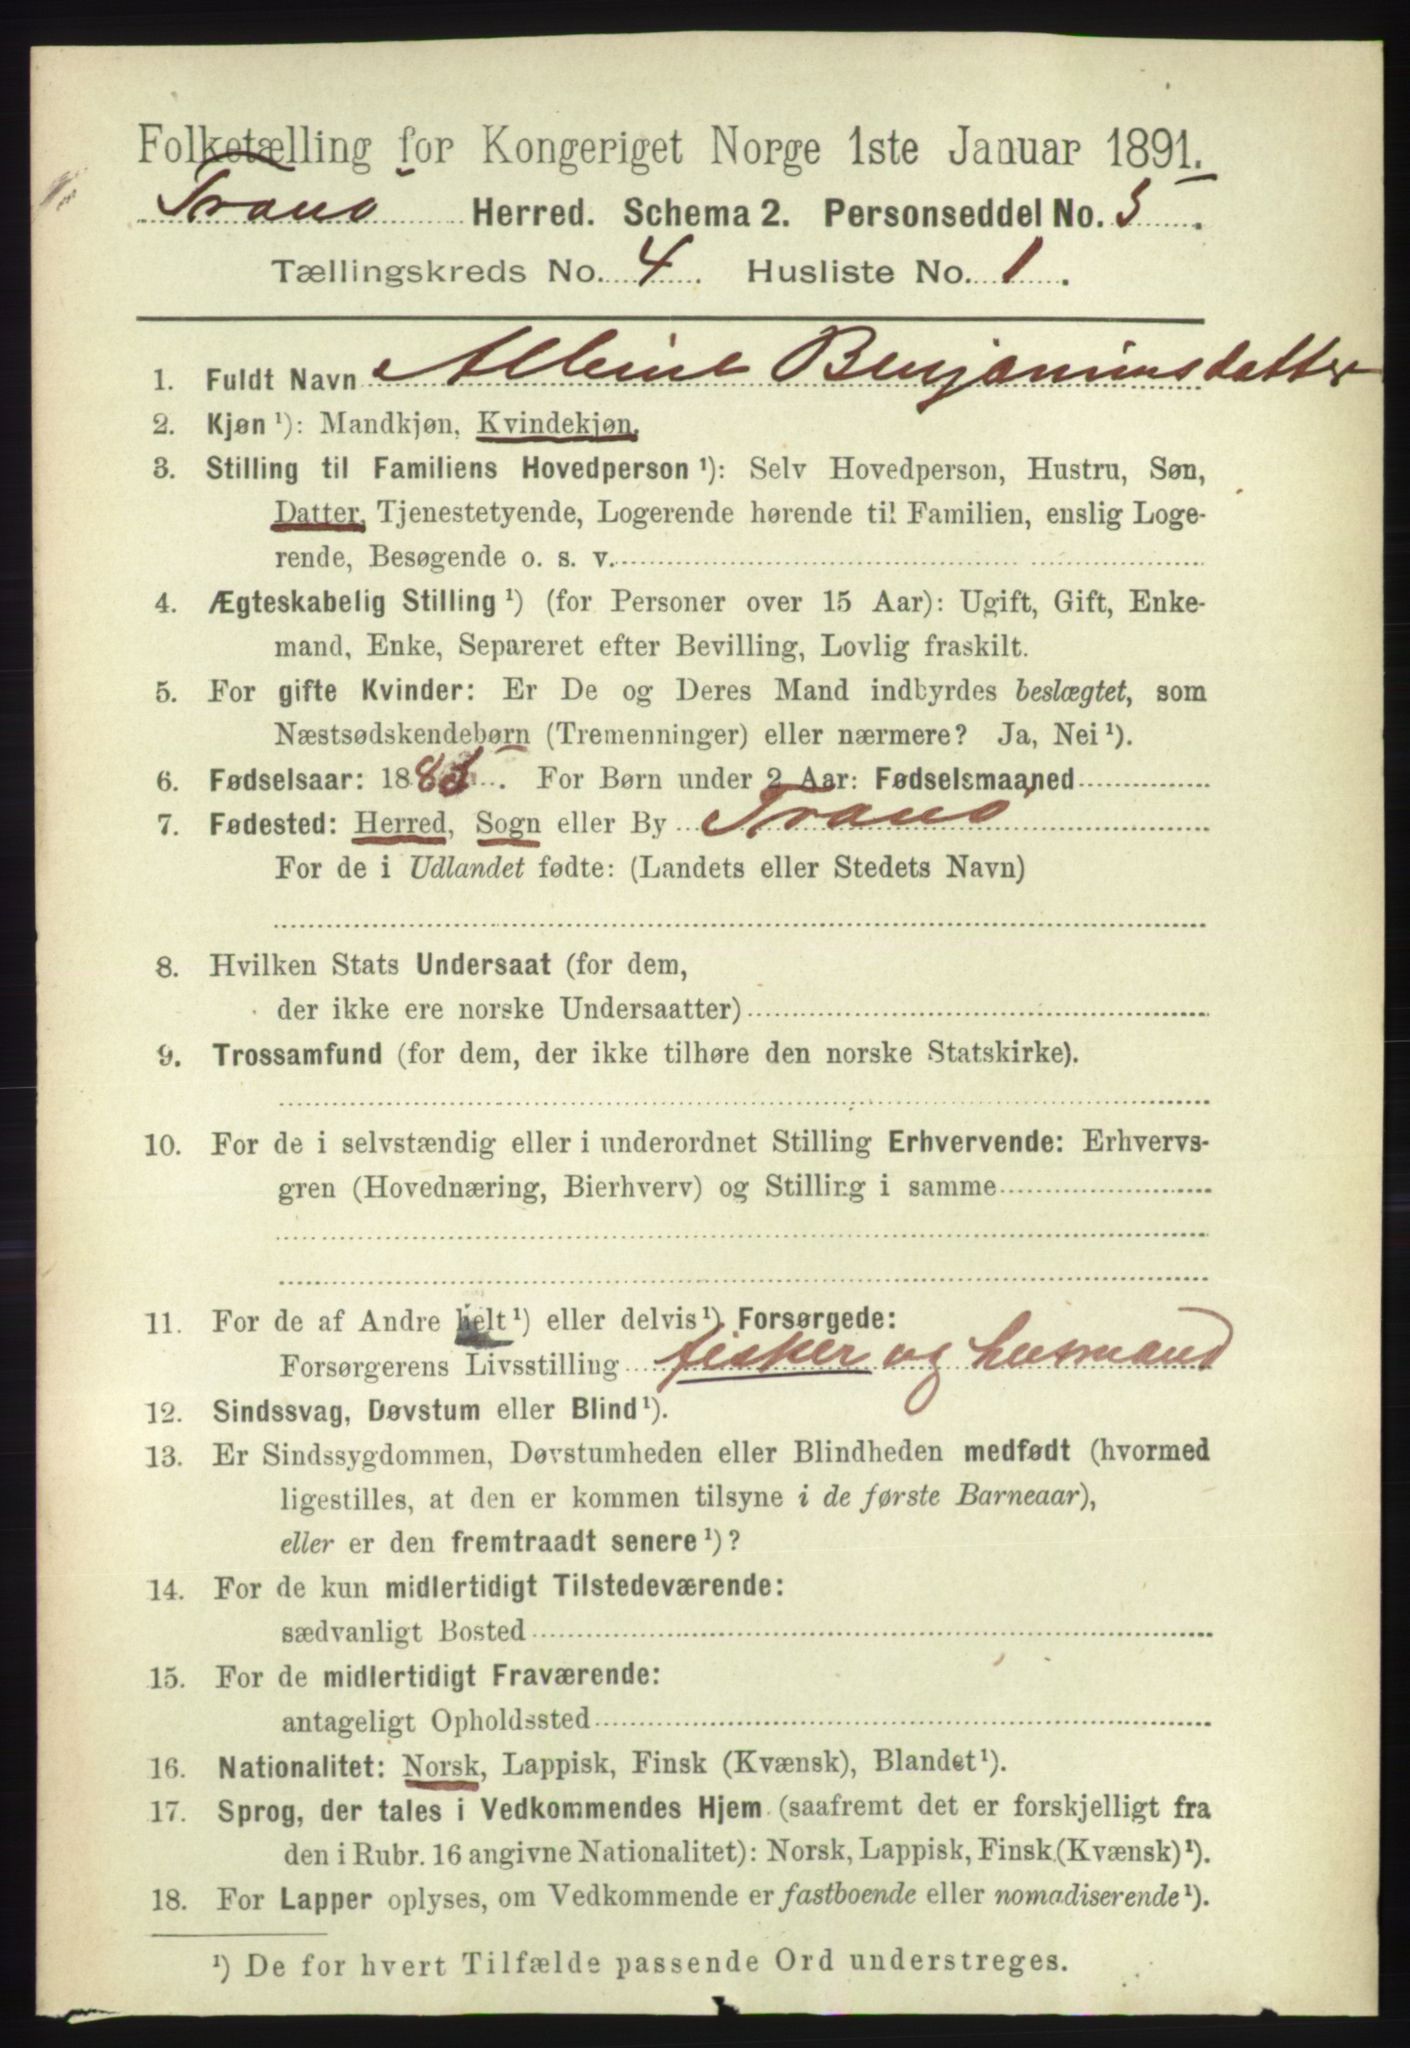 Folketælling for Kongeriget Norge 1ste Januar 1891.
Tranø Herred. Schema 2. Personseddel No. 5.
Tællingskreds No. 4. Husliste No. 1.
1. Fuldt Navn Albine Benjaminsdatter
2. Kjøn ¹): Mandkjøn, Kvindekjøn.
3. Stilling til Familiens Hovedperson ¹): Selv Hovedperson, Hustru, Søn,
Datter, Tjenestetyende, Logerende hørende til Familien, enslig Loge-
rende, Besøgende o. s. v.
4. Ægteskabelig Stilling ¹) (for Personer over 15 Aar): Ugift, Gift, Enke-
mand, Enke, Separeret efter Bevilling, Lovlig fraskilt.
5. For gifte Kvinder: Er De og Deres Mand indbyrdes beslægtet, som
Næstsødskendebørn (Tremenninger) eller nærmere? Ja, Nei ¹).
6. Fødselsaar: 188 . For Børn under 2 Aar: Fødselsmaaned
7. Fødested: Herred, Sogn eller By Tranø
For de i Udlandet fødte: (Landets eller Stedets Navn)
8. Hvilken Stats Undersaat (for dem,
der ikke ere norske Undersaatter)
9. Trossamfund (for dem, der ikke tilhøre den norske Statskirke).
10. For de i selvstændig eller i underordnet Stilling Erhvervende: Erhvervs-
gren (Hovednæring, Bierhverv) og Stilling i samme
11. For de af Andre helt ¹) eller delvis ¹) Forsørgede:
Forsørgerens Livsstilling fisker og husmand
12. Sindssvag, Døvstum eller Blind ¹).
13. Er Sindssygdommen, Døvstumheden eller Blindheden medfødt (hvormed
ligestilles, at den er kommen tilsyne i de første Barneaar),
eller er den fremtraadt senere ¹)?
14. For de kun midlertidigt Tilstedeværende:
sædvanligt Bosted
15. For de midlertidigt Fraværende:
antageligt Opholdssted
16. Nationalitet: Norsk, Lappisk, Finsk (Kvænsk), Blandet ¹).
17. Sprog, der tales i Vedkommendes Hjem (saafremt det er forskjelligt fra
den i Rubr. 16 angivne Nationalitet): Norsk, Lappisk, Finsk (Kvænsk) ¹).
18. For Lapper oplyses, om Vedkommende er fastboende eller nomadiserende ¹).
¹) De for hvert Tilfælde passende Ord understreges.